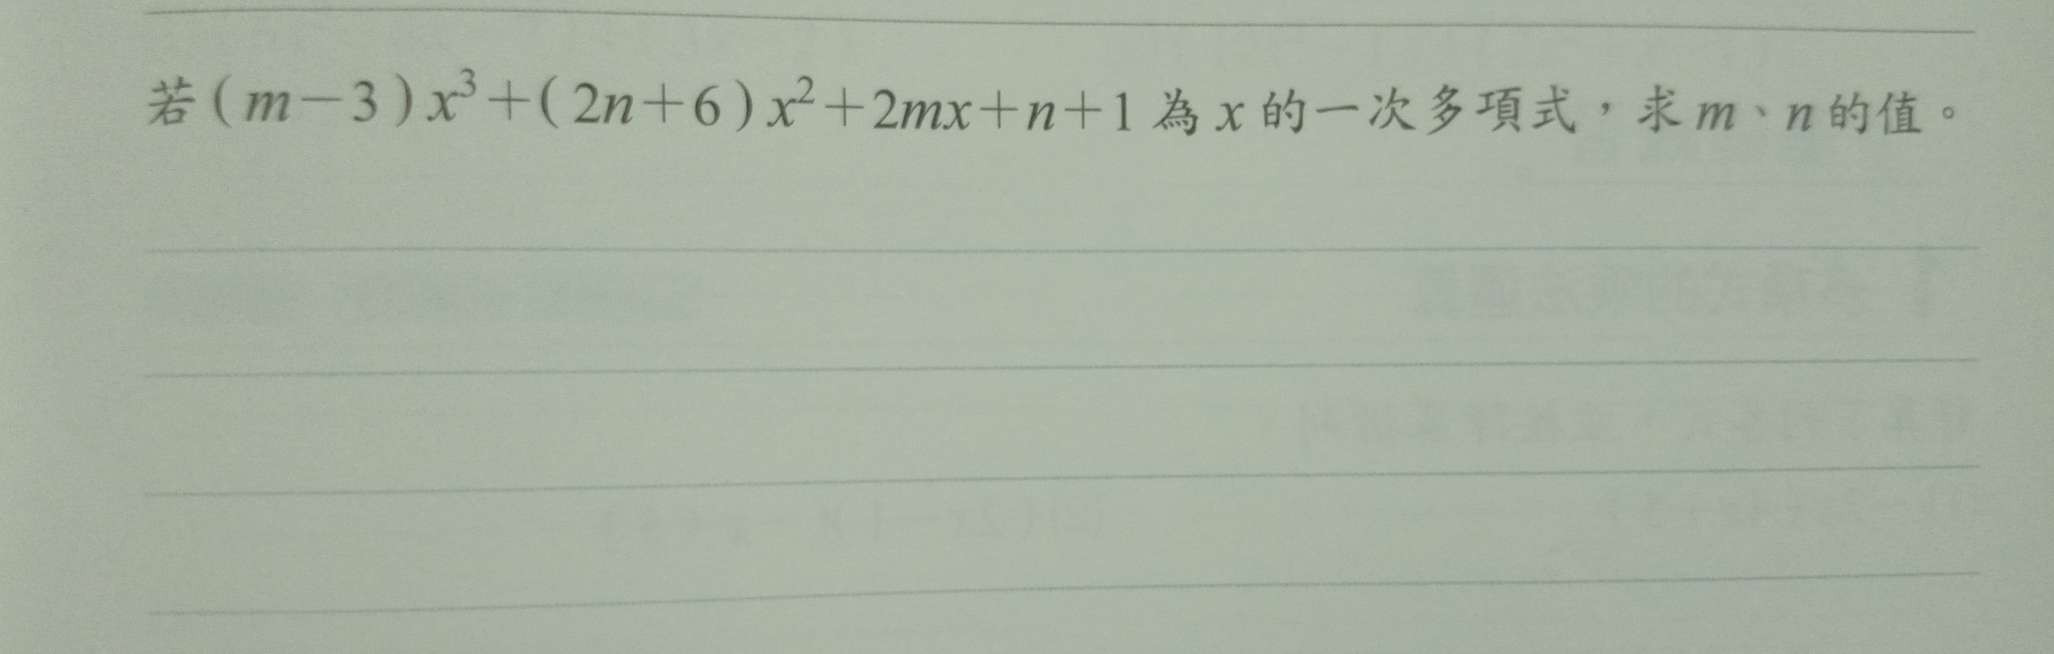 若(m-3)x³+(2n+6)x²+2mx+n+1為x的一次多項式，求m、n的值。